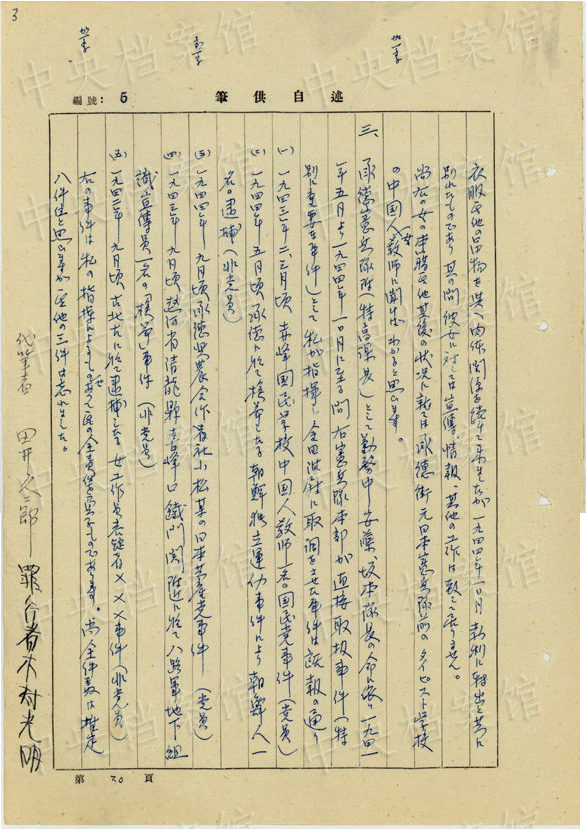 3
加一字
訂一字
加一字
編號：6
筆供自述
衣服其他の品物を与へ肉体関係を続けて来ましたが一九四四年一〇月赤利に転出と共に
別れたものであり其の間彼女に対しては宣傳、情報、其他の工作は致して居りません。
尚右の女の本籍其他其後の状況に就ては承徳街元日本憲兵隊前のタイピスト学校
の中国人女教師に聞けばわかると思います。
三、承徳憲兵隊附（特高課長）として勤務中安藤、坂本隊長の命に依り一九四一
年五月より一九四四年一〇月に至る間右憲兵隊本部が直接取扱事件（特
別に重要な事件）として私が指揮し全田准尉に取調させた事件は既報の通り
（一）一九四三年二、三月頃赤峰国民学校中国人教師一名の国民党事件（党員）
（二）一九四四年五月頃承徳に於て検挙したる朝鮮独立運動事件により朝鮮人一
名の逮捕（非党員）
（三）一九四四年九月頃承徳興農合作社社員小松某の日本共産党事件（党員）
（四）一九四三年九月頃熱河省青龍縣喜峰口鉄門関附近に於て八路軍地下組
織宣傳員一名の検挙事件（非党員）
（五）一九四三年九月頃古北口に於て逮捕したる女工作員表錠省×××事件（非党員）
右の事件は私の指揮によるものであって其の全責任を負ふものであります。尚全件数は推定
八件位と思いますが其他の三件は忘れました。
代筆者 田井久二郎
罪行者木村光明
第 20 頁
中央档案馆